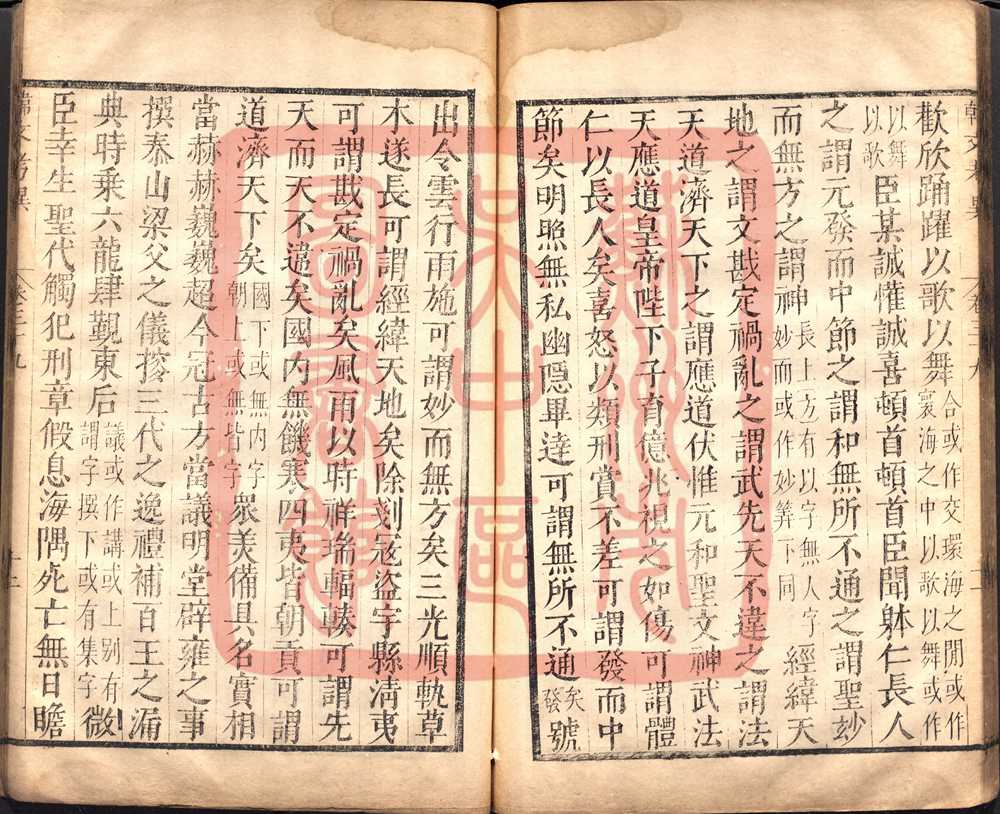 歡欣踊躍以歌以舞合或作交環海之閒或作寰海之中以歌以舞或作
以舞以歌臣某誠懽誠喜頓首頓首臣聞躰仁長人
之謂元發而中節之謂和無所不通之謂聖妙
而無方之謂神長上方有以字無人字妙而或作妙筭下同經緯天
地之謂文戡定禍亂之謂武先天不違之謂法
天道濟天下之謂應道伏惟元和聖文神武法
天應道皇帝陛下子育億兆視之如傷可謂體
仁以長人矣喜怒以類刑賞不差可謂發而中
節矣明照無私幽隱畢達可謂無所不通矣發號
出令雲行雨施可謂妙而無方矣三光順軌草
木遂長可謂經緯天地矣除刬寇盜宇縣清夷
可謂戡定禍亂矣風雨以時祥瑞輻輳可謂先
天而天不違矣國内無饑寒四夷皆朝貢可謂
道濟天下矣國下或無内字朝上或無皆字衆美備具名實相
當赫赫巍巍超今冠古方當議明堂辟雍之事
撰泰山梁父之儀搜三代之逸禮補百王之漏
典時乗六龍肆覲東后議或作講或上别有謂字撰下或有集字微
臣幸生聖代觸犯刑章假息海隅死亡無日瞻
韓文考異
卷三十九